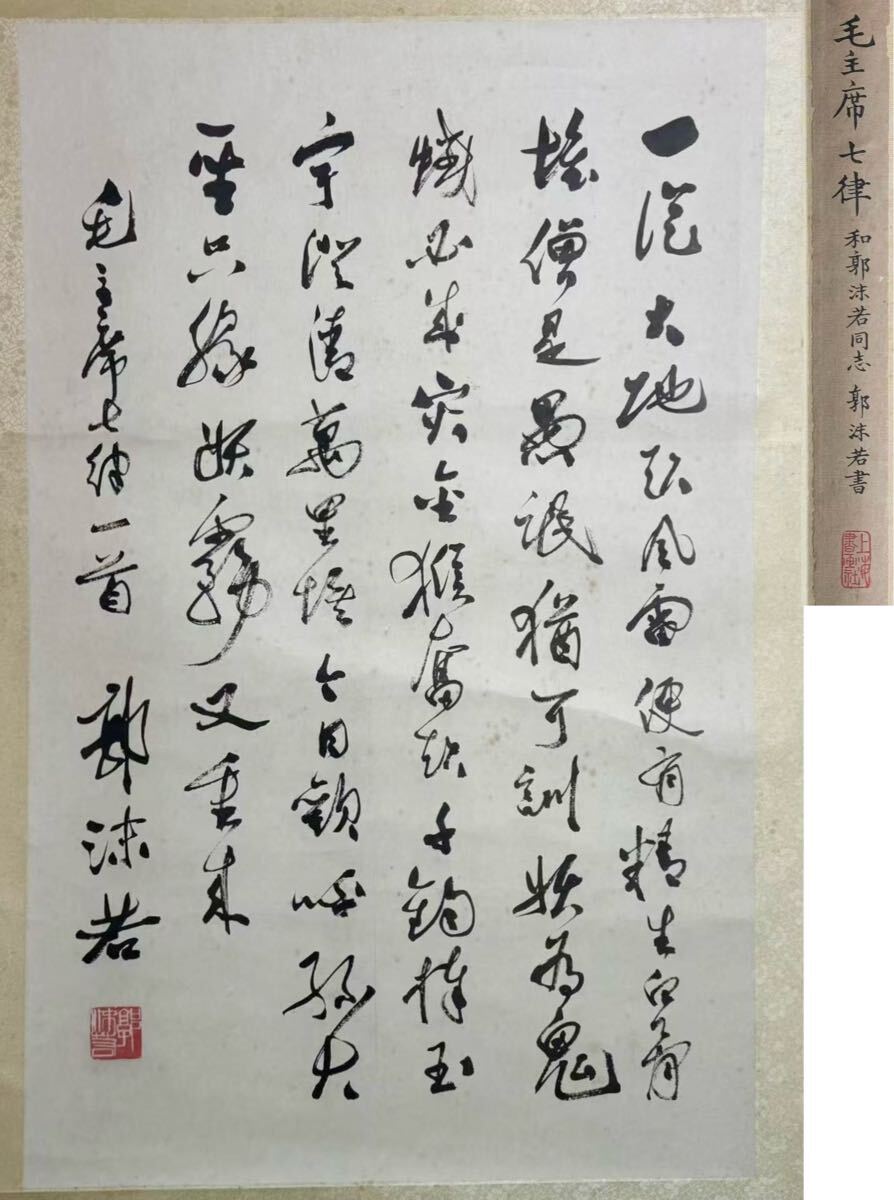 一從大地起風雷便有精生白骨
堆僧是愚氓猶可訓妖為鬼
蜮必成災金猴奮起千鈞棒玉
宇澄清萬里埃今日歡呼孫大
聖只緣妖霧又重來
毛主席七律一首 郭沫若
郭沫若
毛主席七律 和郭沫若同志 郭沫若書
上海書畫社